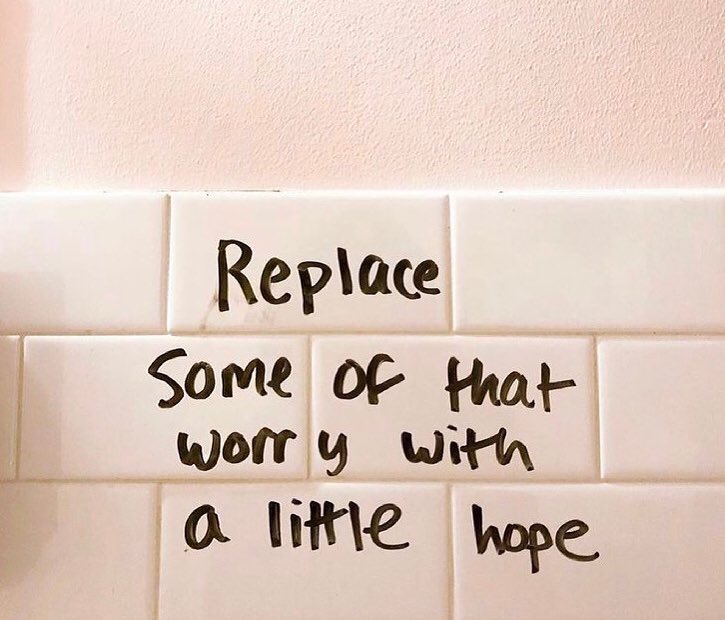 Replace
Some of that
worry with
a little hope